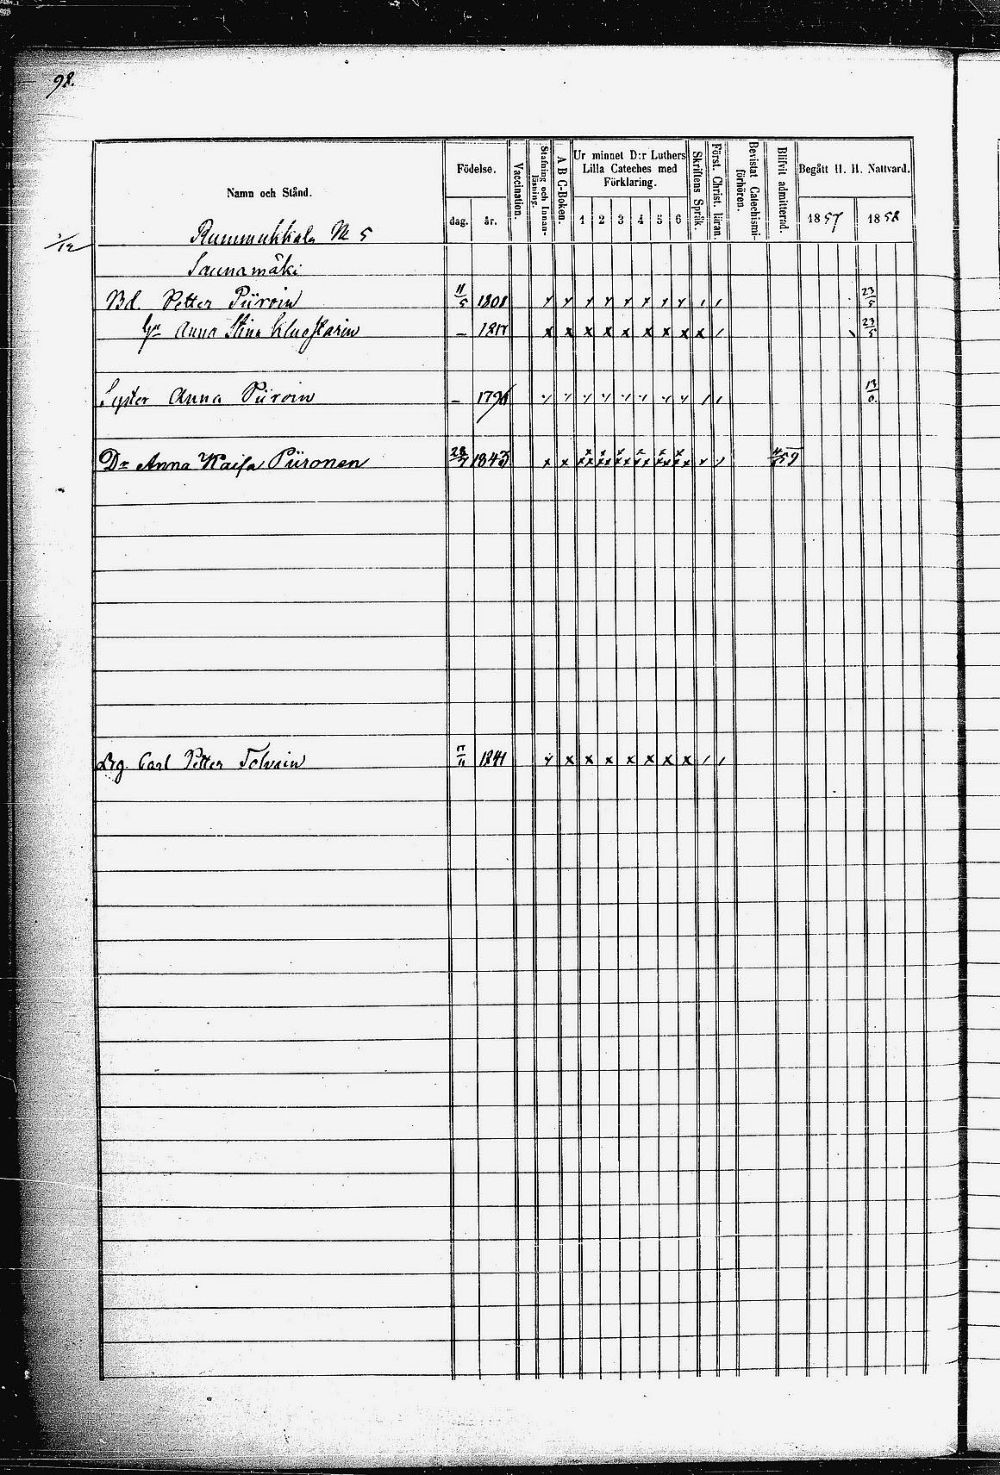 98.
Namn och Stånd. Födelse. dag. år. Vaccination. Stafning och Innanläsning. A B C-Boken. Ur minnet D:r Luthers Lilla Cateches med Förklaring. 1 2 3 4 5 6 Skriftens Språk. Först. Christ. läran. Bevistat Catechismiförhören. Blifvit admitterad. Begått H. H. Nattvard. 1857 1858
1/12 Rummukkala № 5
Saunamäki
Bd. Petter Piiroin 11/5 1808 23/5
Anna Stina 23/5
Syster Anna Piiroin –
Dr Anna Kaisa Piironen 59
Drg. Carl Petter Tolvain 1841